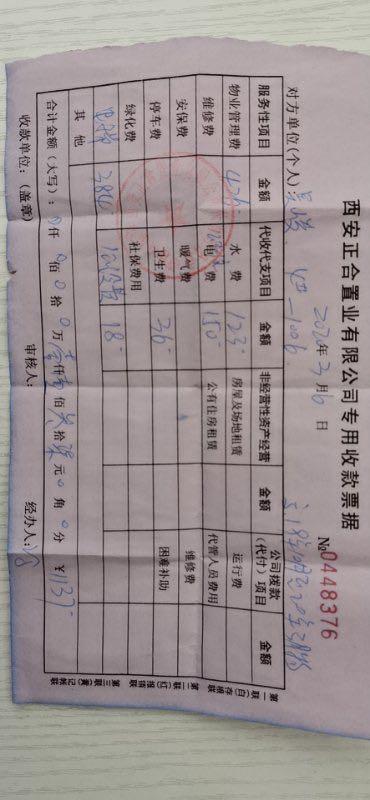 西安正合置业有限公司专用收款票据
对方单位(个人) 2020年3月6日 №0448376
服务性项目 金额 代收代支项目 金额 非经营性资产经营 金额 公司拨款(代付)项目 金额
物业管理费 426- 水 费 123- 房屋及场地租赁 运行费
维修费 电 费 150- 公有住房租赁 代管人员费用
安保费 暖气费 维修费
停车费 卫生费 36- 困难补助
绿化费 社保费用
电梯费 384- 垃圾 18-
其 他
合计金额(大写): 0仟 0佰 0拾 0万 壹仟 壹佰 叁拾 柒元 0角 0分 ¥1137-
收款单位:(盖章) 审核人: 经办人:
第一联(白)存根联
第二联(红)报销联
第三联(黄)记帐联